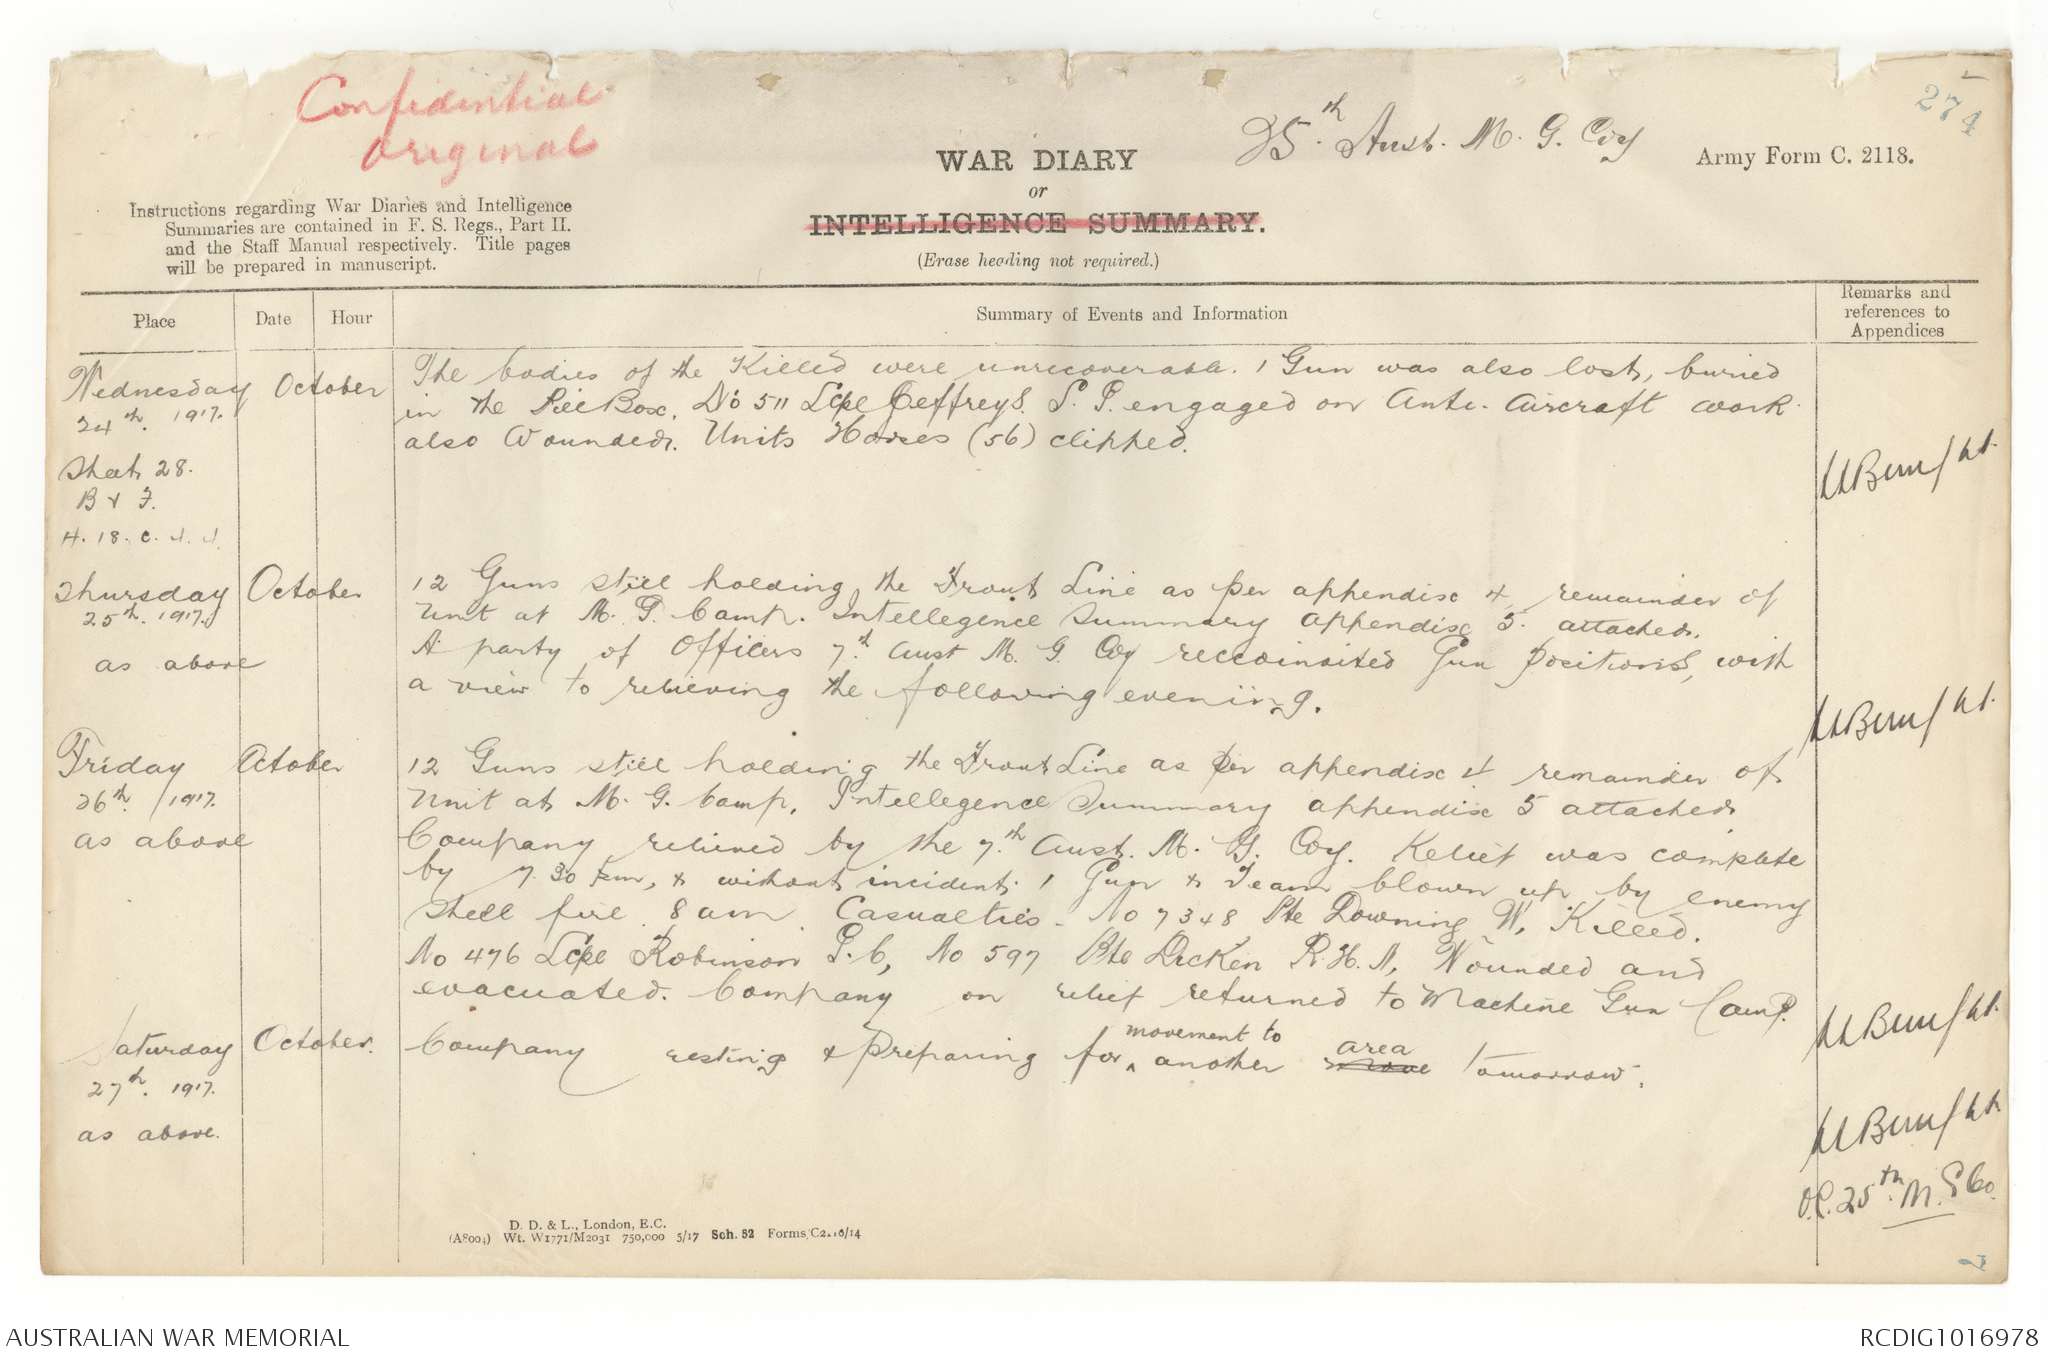 Confidential
Original
274
25th Aust. M. G. Coy
Army Form C. 2118.
WAR DIARY
or
INTELLIGENCE SUMMARY.
(Erase heading not required.)
Instructions regarding War Diaries and Intelligence
Summaries are contained in F. S. Regs., Part II.
and the Staff Manual respectively. Title pages
will be prepared in manuscript.
Place Date Hour Summary of Events and Information
Remarks and
references to
Appendices
Wednesday October
24th. 1917.
Sheet 28.
B & F.
H. 18. c. 4. 4.
The bodies of the Killed were unrecoverable. 1 Gun was also lost, buried
in the Pill Box. No 511 L/Cpl Jeffreys. S. P. engaged on Anti. Aircraft work
also Wounded. Units Horses (56) clipped.
Lt.
Thursday October
25th. 1917.
as above
12 Guns still holding the Front Line as per appendix 4, remainder of
Unit at M. G. Camp. Intellegence Summary appendix 5. attached.
A party of Officers 7th Aust M. G. Coy reccoinoited Gun positions, with
a view to relieving the following eveniing.
Lt.
Friday October
26th. 1917.
as above
12 Guns still holding the Front Line as per appendix 4. remainder of
Unit at M. G. Camp, Intellegence Summary appendix 5 attached
Company relieved by the 7th Aust. M. G. Coy. Relief was complete
by 7.30 pm, & without incident. 1 Gun & Team blown up by enemy
shell fire 8 am. Casualties. No 7348 Pte Downing W. Killed.
No 476 L/Cpl Robinson G. C, No 597 Pte Dicken R. H. A, Wounded and
evacuated. Company on relief returned to Machine Gun Camp.
Lt.
Saturday October.
27th. 1917.
as above.
Company resting & Preparing for movement to another move area tomorrow.
Lt.
O.C. 25th M. G Co.
D. D. & L., London, E.C.
(A8004) Wt. W1771/M2031 750,000 5/17 Sch. 52 Forms/C2118/14
AUSTRALIAN WAR MEMORIAL
RCDIG1016978